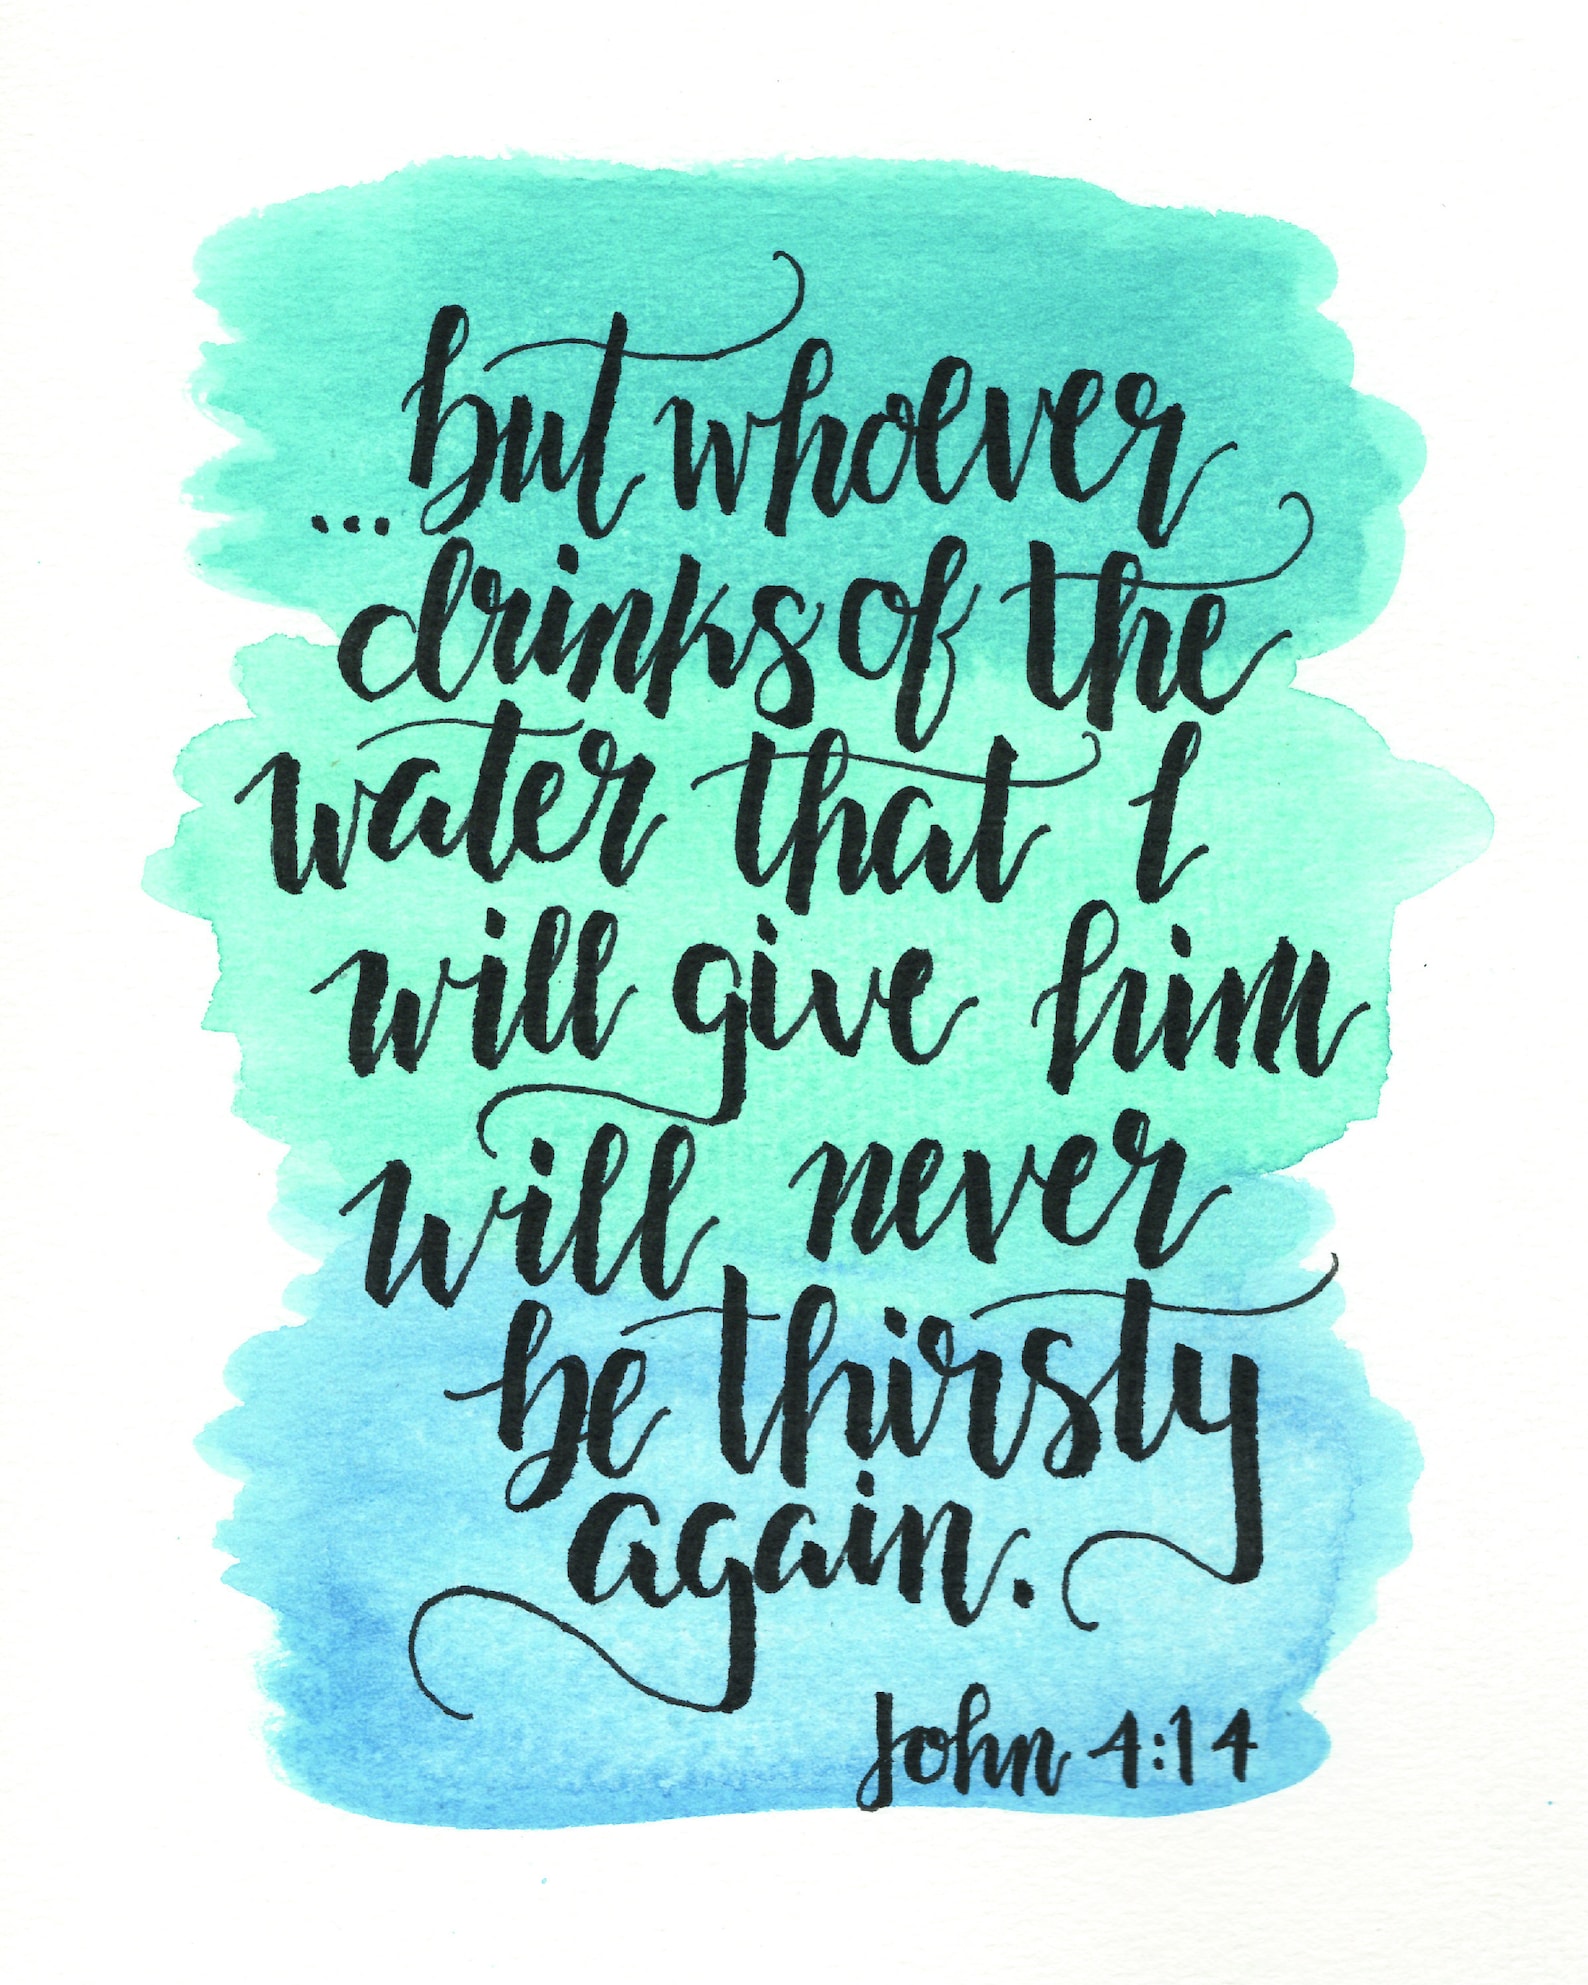 ...but whoever
drinks of the
water that I
will give him
will never
be thirsty
again.
John 4:14